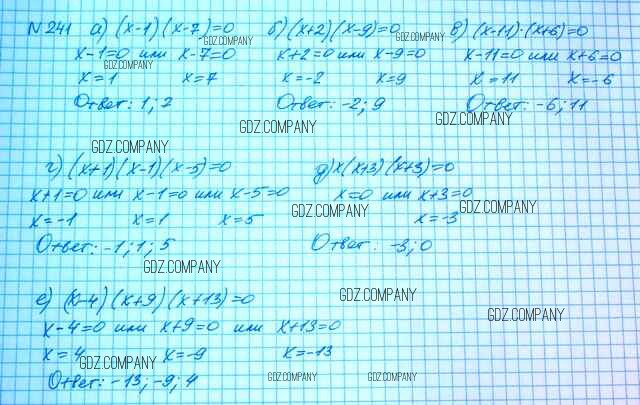 N 241 а) (x-1)(x-7)=0 б) (x+2)(x-9)=0 в) (x-11)·(x+6)=0
GDZ.COMPANY GDZ.COMPANY
x-1=0 или x-7=0 x+2=0 или x-9=0 x-11=0 или x+6=0
GDZ.COMPANY
x=1 x=7 x=-2 x=9 x=11 x=-6
Ответ: 1; 7 Ответ: -2; 9 Ответ: -6; 11
GDZ.COMPANY GDZ.COMPANY
GDZ.COMPANY
г) (x+1)(x-1)(x-5)=0 д) x(x+3)(x+3)=0
x+1=0 или x-1=0 или x-5=0 x=0 или x+3=0
x=-1 x=1 x=5 x=-3
GDZ.COMPANY GDZ.COMPANY
Ответ: -1; 1; 5 Ответ: -3; 0
GDZ.COMPANY
е) (x-4)(x+9)(x+13)=0
GDZ.COMPANY
GDZ.COMPANY
x-4=0 или x+9=0 или x+13=0
x=4 x=-9 x=-13
GDZ.COMPANY
Ответ: -13; -9; 4
GDZ.COMPANY GDZ.COMPANY